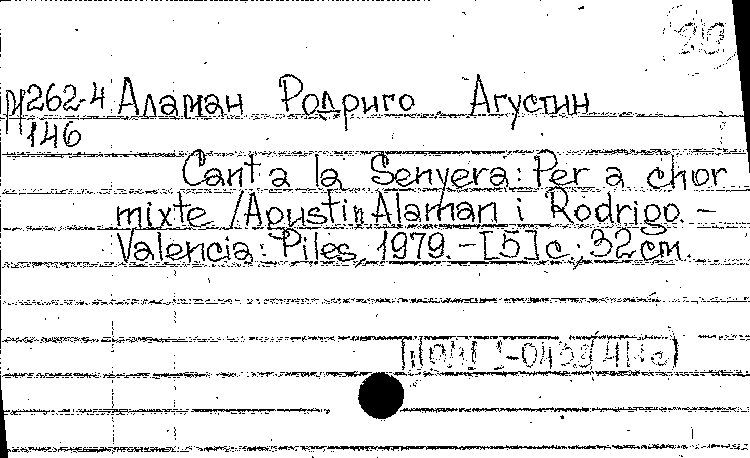 М262-4 Аламан Родриго Агустин
146
Cant a la Senyera: Per a chor
mixte / Agustin Alaman i Rodrigo. –
Valencia: Piles, 1979. – [5] с.; 32 см.